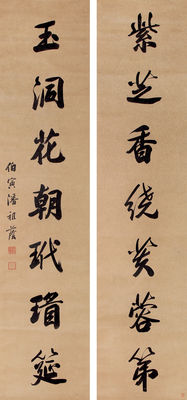 紫芝香绕芙蓉第
玉洞花朝玳瑁筵
伯寅潘祖荫